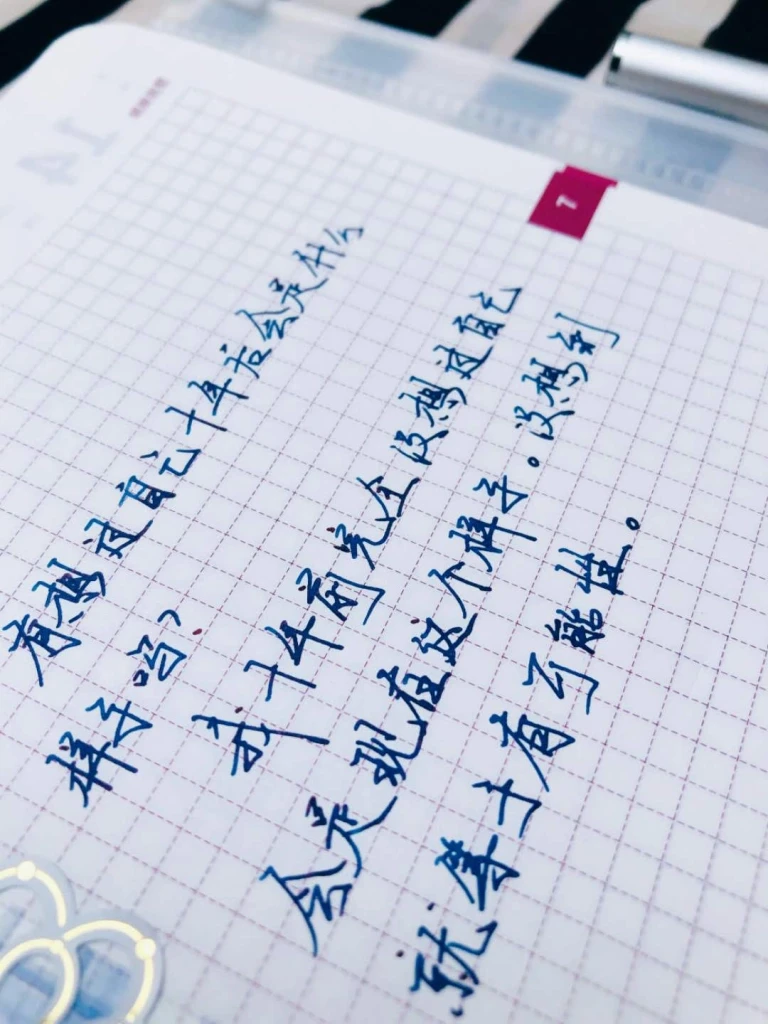 7
有想过自己十年后会是什么
样子吗，
我十年前完全没想过自己
会是现在这个样子。没想到
就等于有可能性。